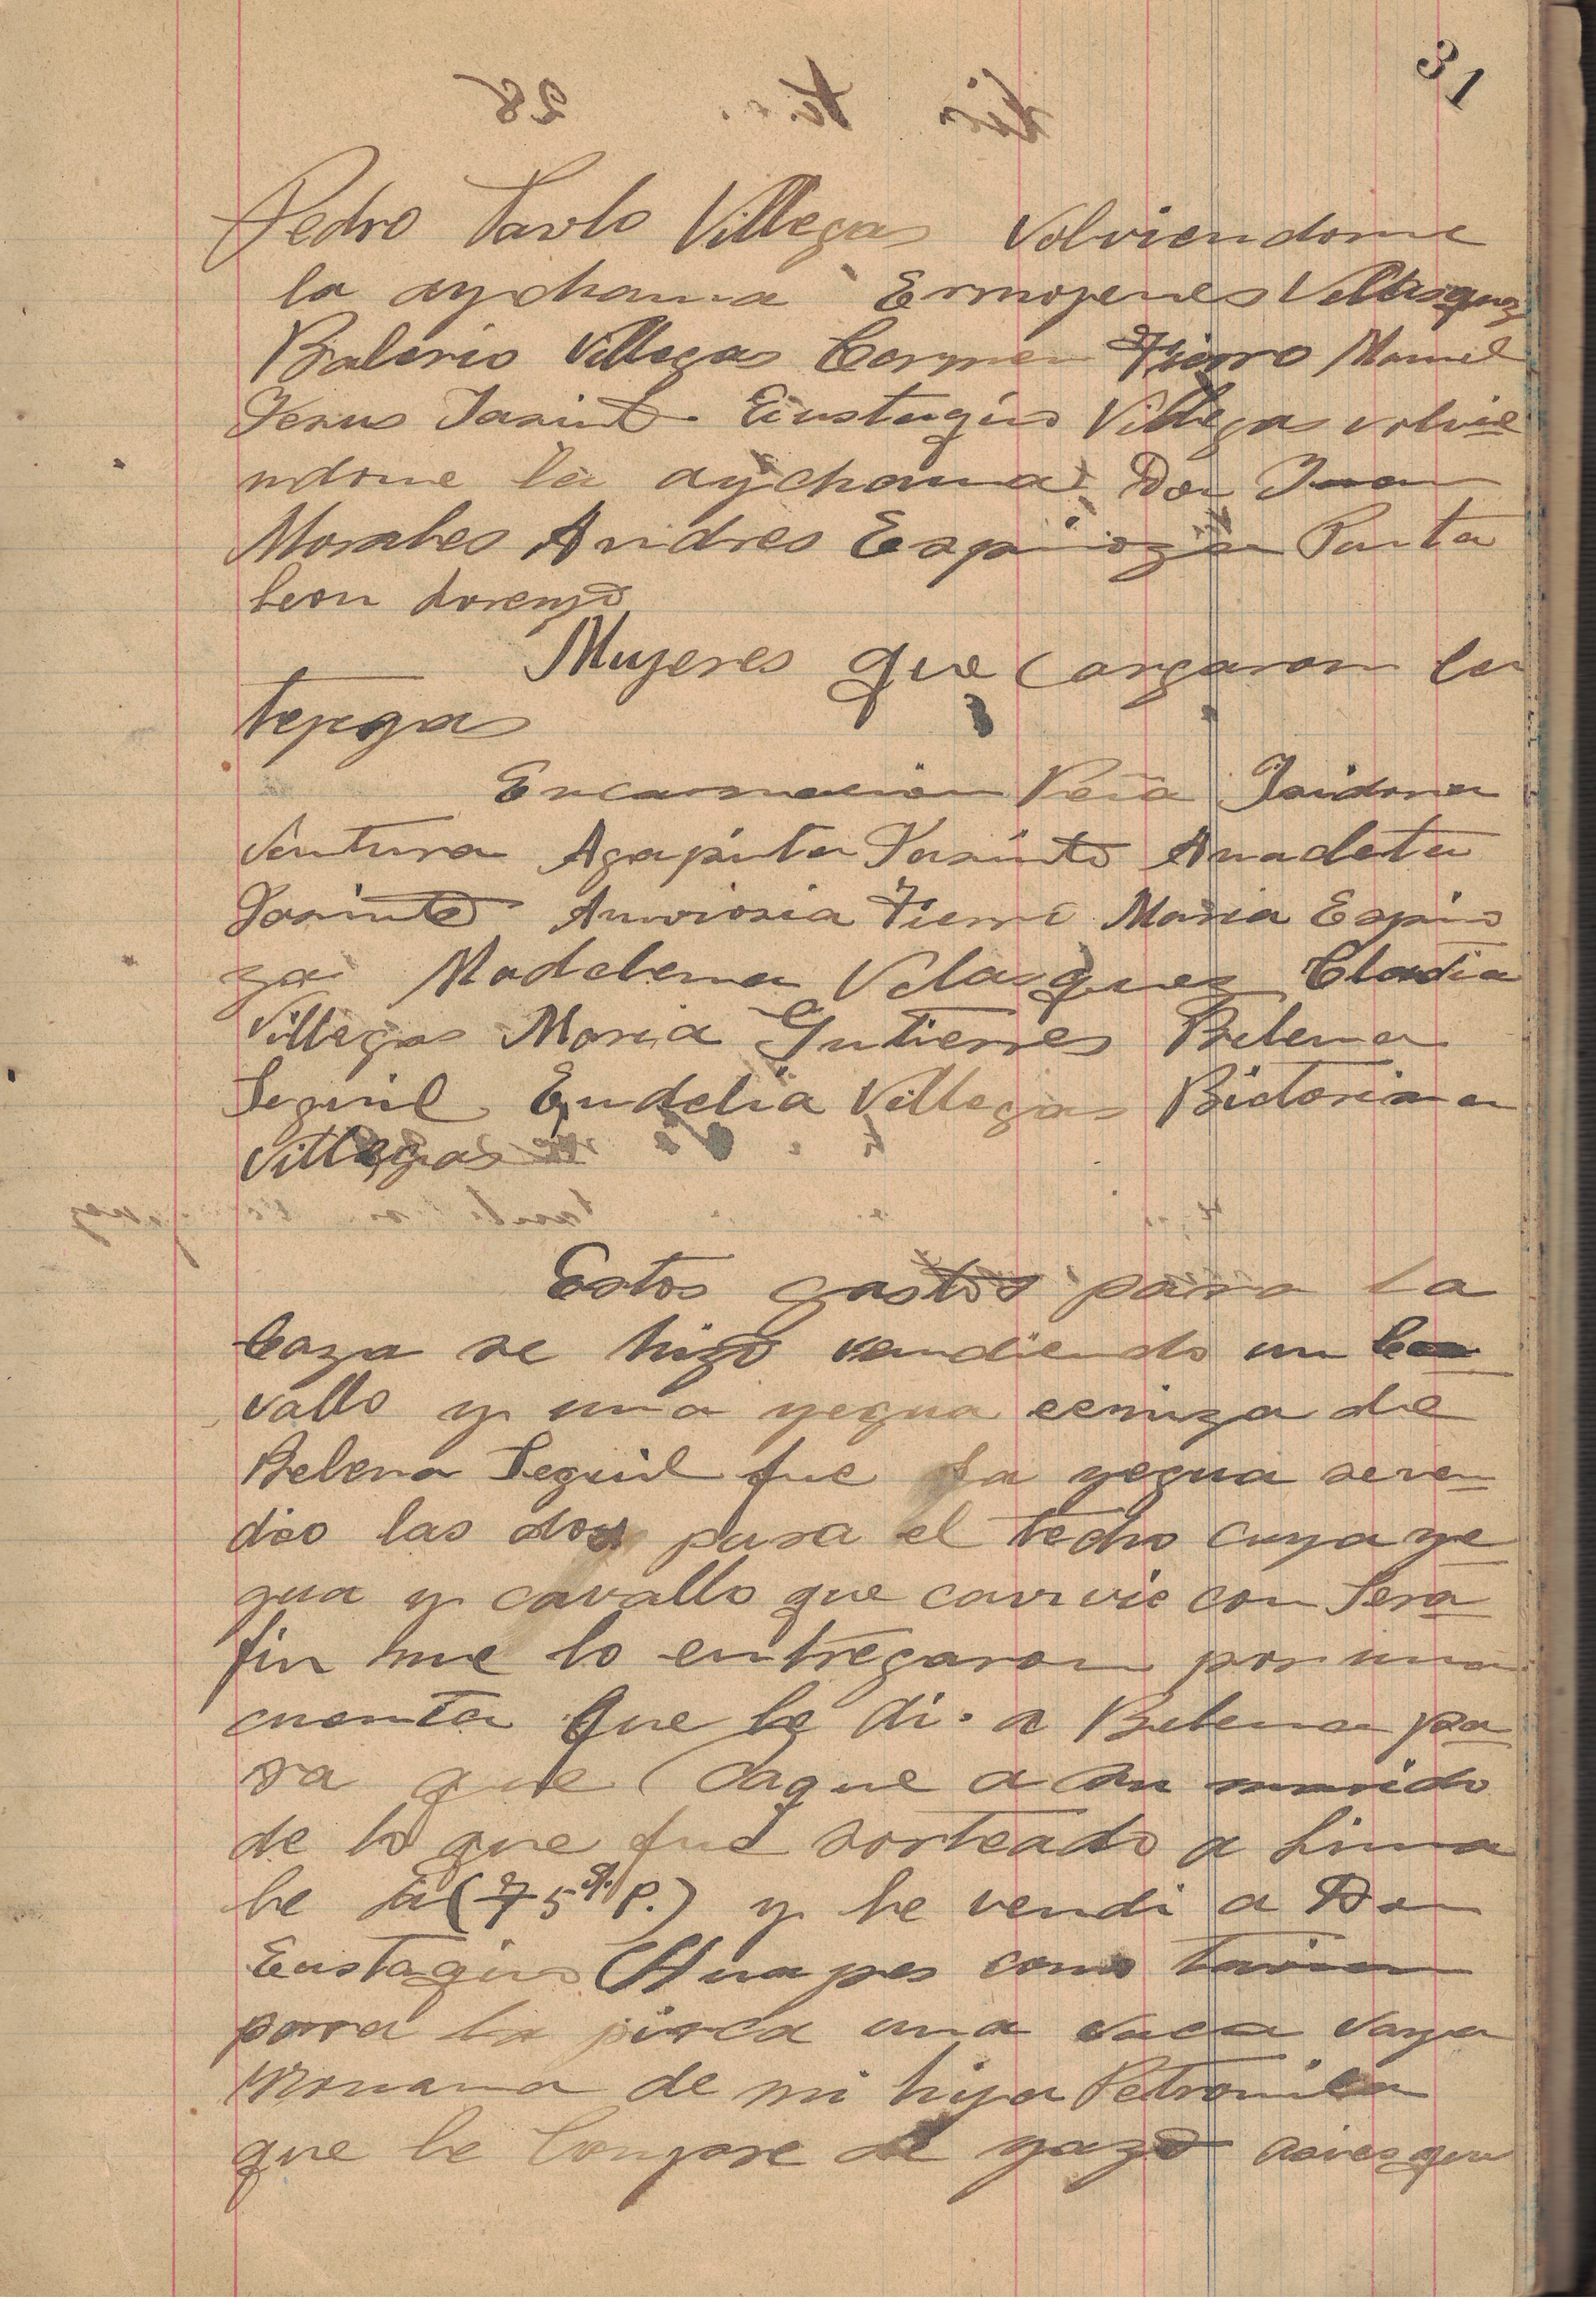 31
Pedro Pavlo Villegas Volviendome
la aychama Ermojenes Velasquez
Balerio Villegas Carmen Fierro Manuel
Jesus Jasinto Eustaquio Villegas volvie
ndome la aychama Don Juan
Morales Andres Espinoza Panta
leon Lorenzo
Mujeres que Cargaron la
tepza
Encarnacion Peña Isidora
Ventura Agapita Jasinto Anacleta
Jasinto Amvrosia Fierro Maria Espino
za Madelena Velasquez Claudia
Villegas Maria Gutierres Belena
Seguil Eudelia Villegas Bictoriana
Villegas
Estos gastos para la
Caza se hizo vendiendo un Ca
vallo y una yegua ceniza de
Belena Seguil fue la yegua seven
dio las dos para el techo cuya ye
gua y cavallo que camvie con Sera
fin me lo entregaron por una
cuenta que le di a Belena pa
ra que saque a su marido
de lo que fue sorteado a Lima
le di (75 S. P.) y le vendi a Don
Eustaquio Huapes como tavien
para la pirca una vaca vaya
Mo de mi hija Petronila
que le Compre de yazo asies que